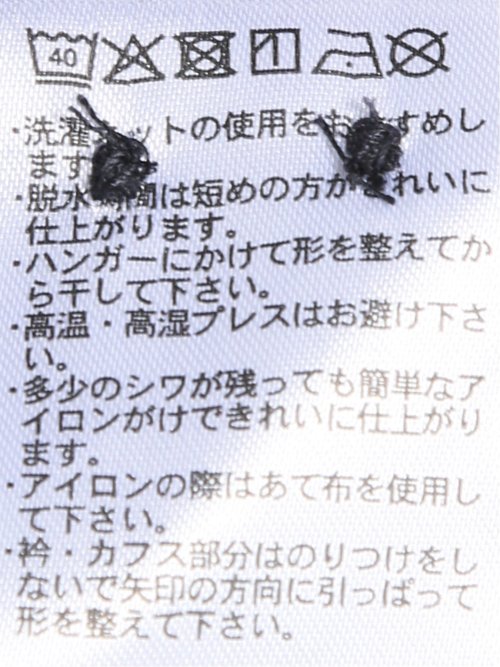 40
・洗濯ネットの使用をおすすめし
ます
・脱水時間は短めの方がきれいに
仕上がります。
・ハンガーにかけて形を整えてか
ら干して下さい。
・高温・高湿プレスはお避け下さ
い。
・多少のシワが残っても簡単なア
イロンがけできれいに仕上がり
ます。
・アイロンの際はあて布を使用し
て下さい。
・衿・カフス部分はのりつけをし
ないで矢印の方向に引っぱって
形を整えて下さい。